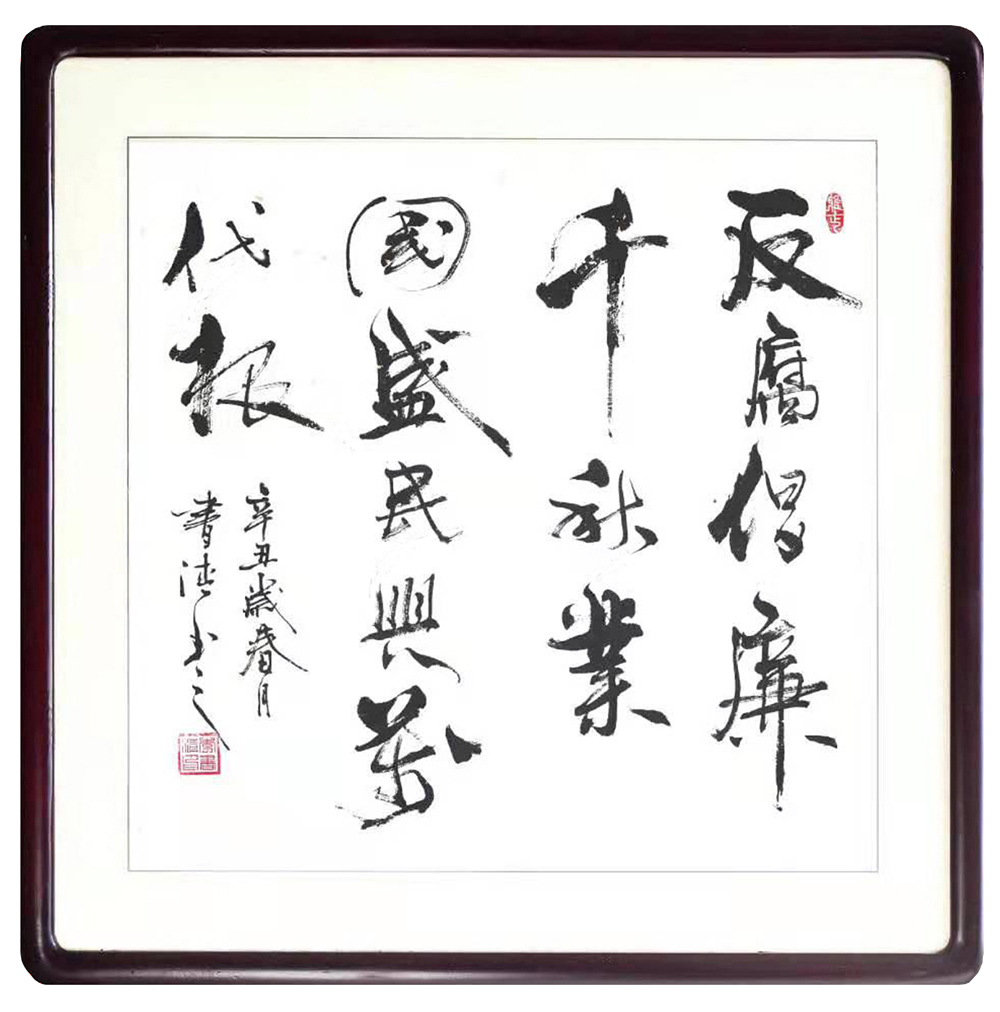 反腐倡廉
千秋業
國盛民興萬
代根
辛丑歲春月
書书之